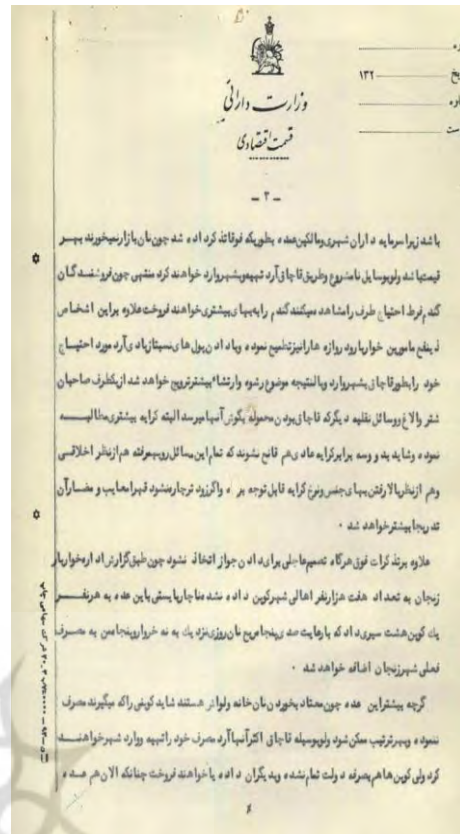 ره
یخ ۱۳۲
اره
ست
وزارت دارائی
قسمت اقتصادی
- ۳ -
باشد زیرا سرمایه داران شهری ومالکین عمده بطوریکه فوقا تذکر داده شد چون نان بازار نمیخورند بهر
قیمتها شد ولو بوسایل نامشروع وطریق قاچاق آرد تهیه وبشهر وارد خواهند کرد منتهی چون فروشندگان
گندم فرط احتیاج طرف رامشاهده میکنند گندم رابه بهای بیشتری خواهند فروخت علاوه براین اشخاص
ذینفع مامورین خواربار ودروازه هارانیز تطمیع نموده وبادادن پول های نسبتا زیادی آرد مورد احتیاج
خود رابطور قاچاق بشهر وارد وبالنتیجه موضوع رشوه وارتشاء بیشتر ترویج خواهد شد از یکطرف صاحبان
شتر والاغ ووسائل نقلیه دیگر که قاچاق بودن محموله بگوش آنها میرسد البته کرایه بیشتری مطالبه
نموده وشاید بدو وسه برابر کرایه عادی هم قانع نشوند که تمام این مسائل رویهمرفته هم از نظر اخلاقی
وهم از نظر بالا رفتن بهای جنس ونرخ کرایه قابل توجه بوده واگر زودتر چاره نشود قهرا معایب ومضار آن
تدریجا بیشتر خواهد شد ۰
علاوه برتذکرات فوق هرگاه تصمیم عاجلی برای دادن جواز اتخاذ نشود چون طبق گزارش اداره خواربار
زنجان به تعداد هفت هزار نفر اهالی شهر کوپن داده نشده ناچار بایستی باین عده به هر نفر
یک کوپن هشت سیری داد که بارعایت صدی پنجاه پخ نان روزی نزدیک به نه خروار وپنجاه من به مصرف
فعلی شهر زنجان اضافه خواهد شد ۰
گرچه بیشتر این عده چون معتاد بخوردن نان خانه ولواش هستند شاید کوپنی راکه میگیرند مصرف
ننموده وبهر ترتیب ممکن شود ولو بوسیله قاچاق اکثر آنها آرد مصرف خود راتهیه ووارد شهر خواهند
کرد ولی کوپن هاهم بصرفه دولت تمام نشده وبدیگران داده یا خواهند فروخت چنانکه الان هم عده